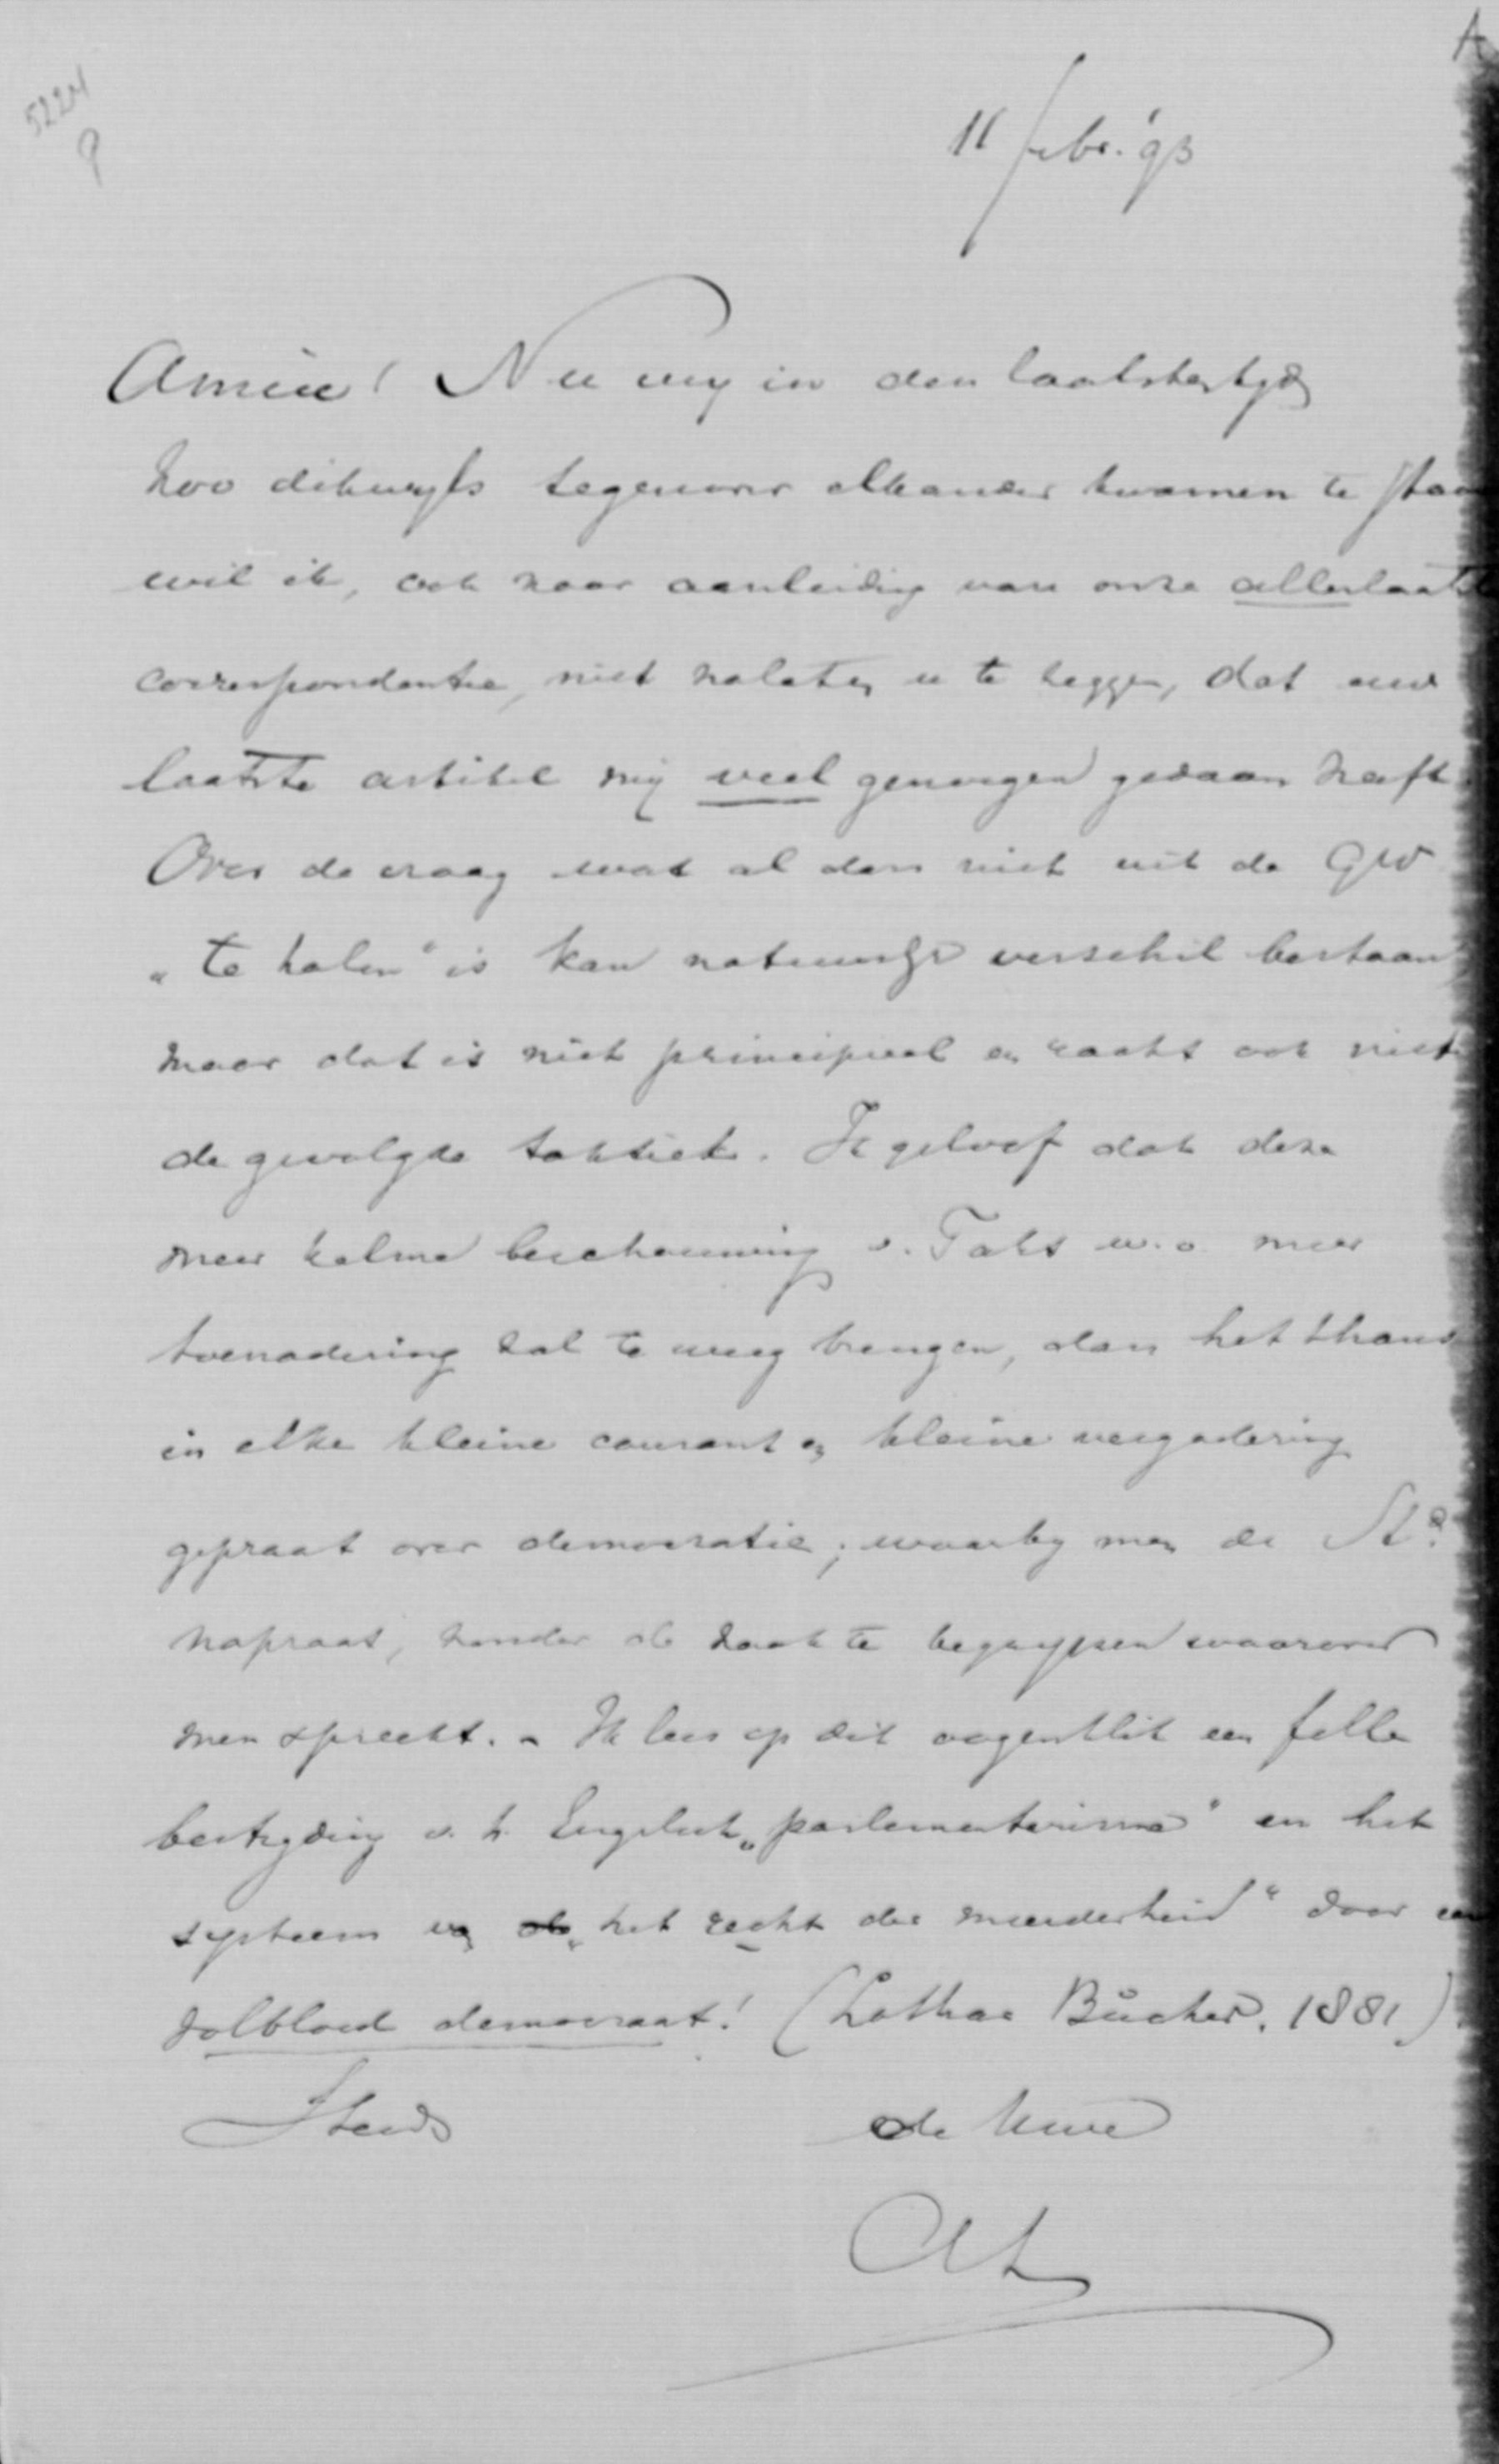 5224
11 febr. '93
Amice! Nu wy in den laatsten tyd
zoo dikwyls tegenover elkander kwamen te staan
wil ik, ook naar aanleiding van onze allerlaatste
correspondentie, niet nalaten u te zeggen, dat uw
laatste artikel mij veel genoegen gedaan heeft.
Over de vraag wat al dan niet uit de GW
„te halen" is kan natuurlijk verschil bestaan,
maar dat is niet principieel en raakt ook niet
de gevolgde taktiek. Ik geloof dat deze
meer kalme beschouwing v. Taks w.o. meer
toenadering zal te weeg brengen, dan het thans
in elke kleine courant en kleine vergadering
gepraat over democratie; waarby men de St.d
napraat, zonder de zaak te begrypen waarover
men spreekt. - Ik lees op dit oogenblik een felle
bestryding v. h. Engelsch „parlementarisme" en het
systeem van de „het recht der meerderheid" door een
volbloed democraat! (Lothar Bücher. 1881)
Steeds de Uwe